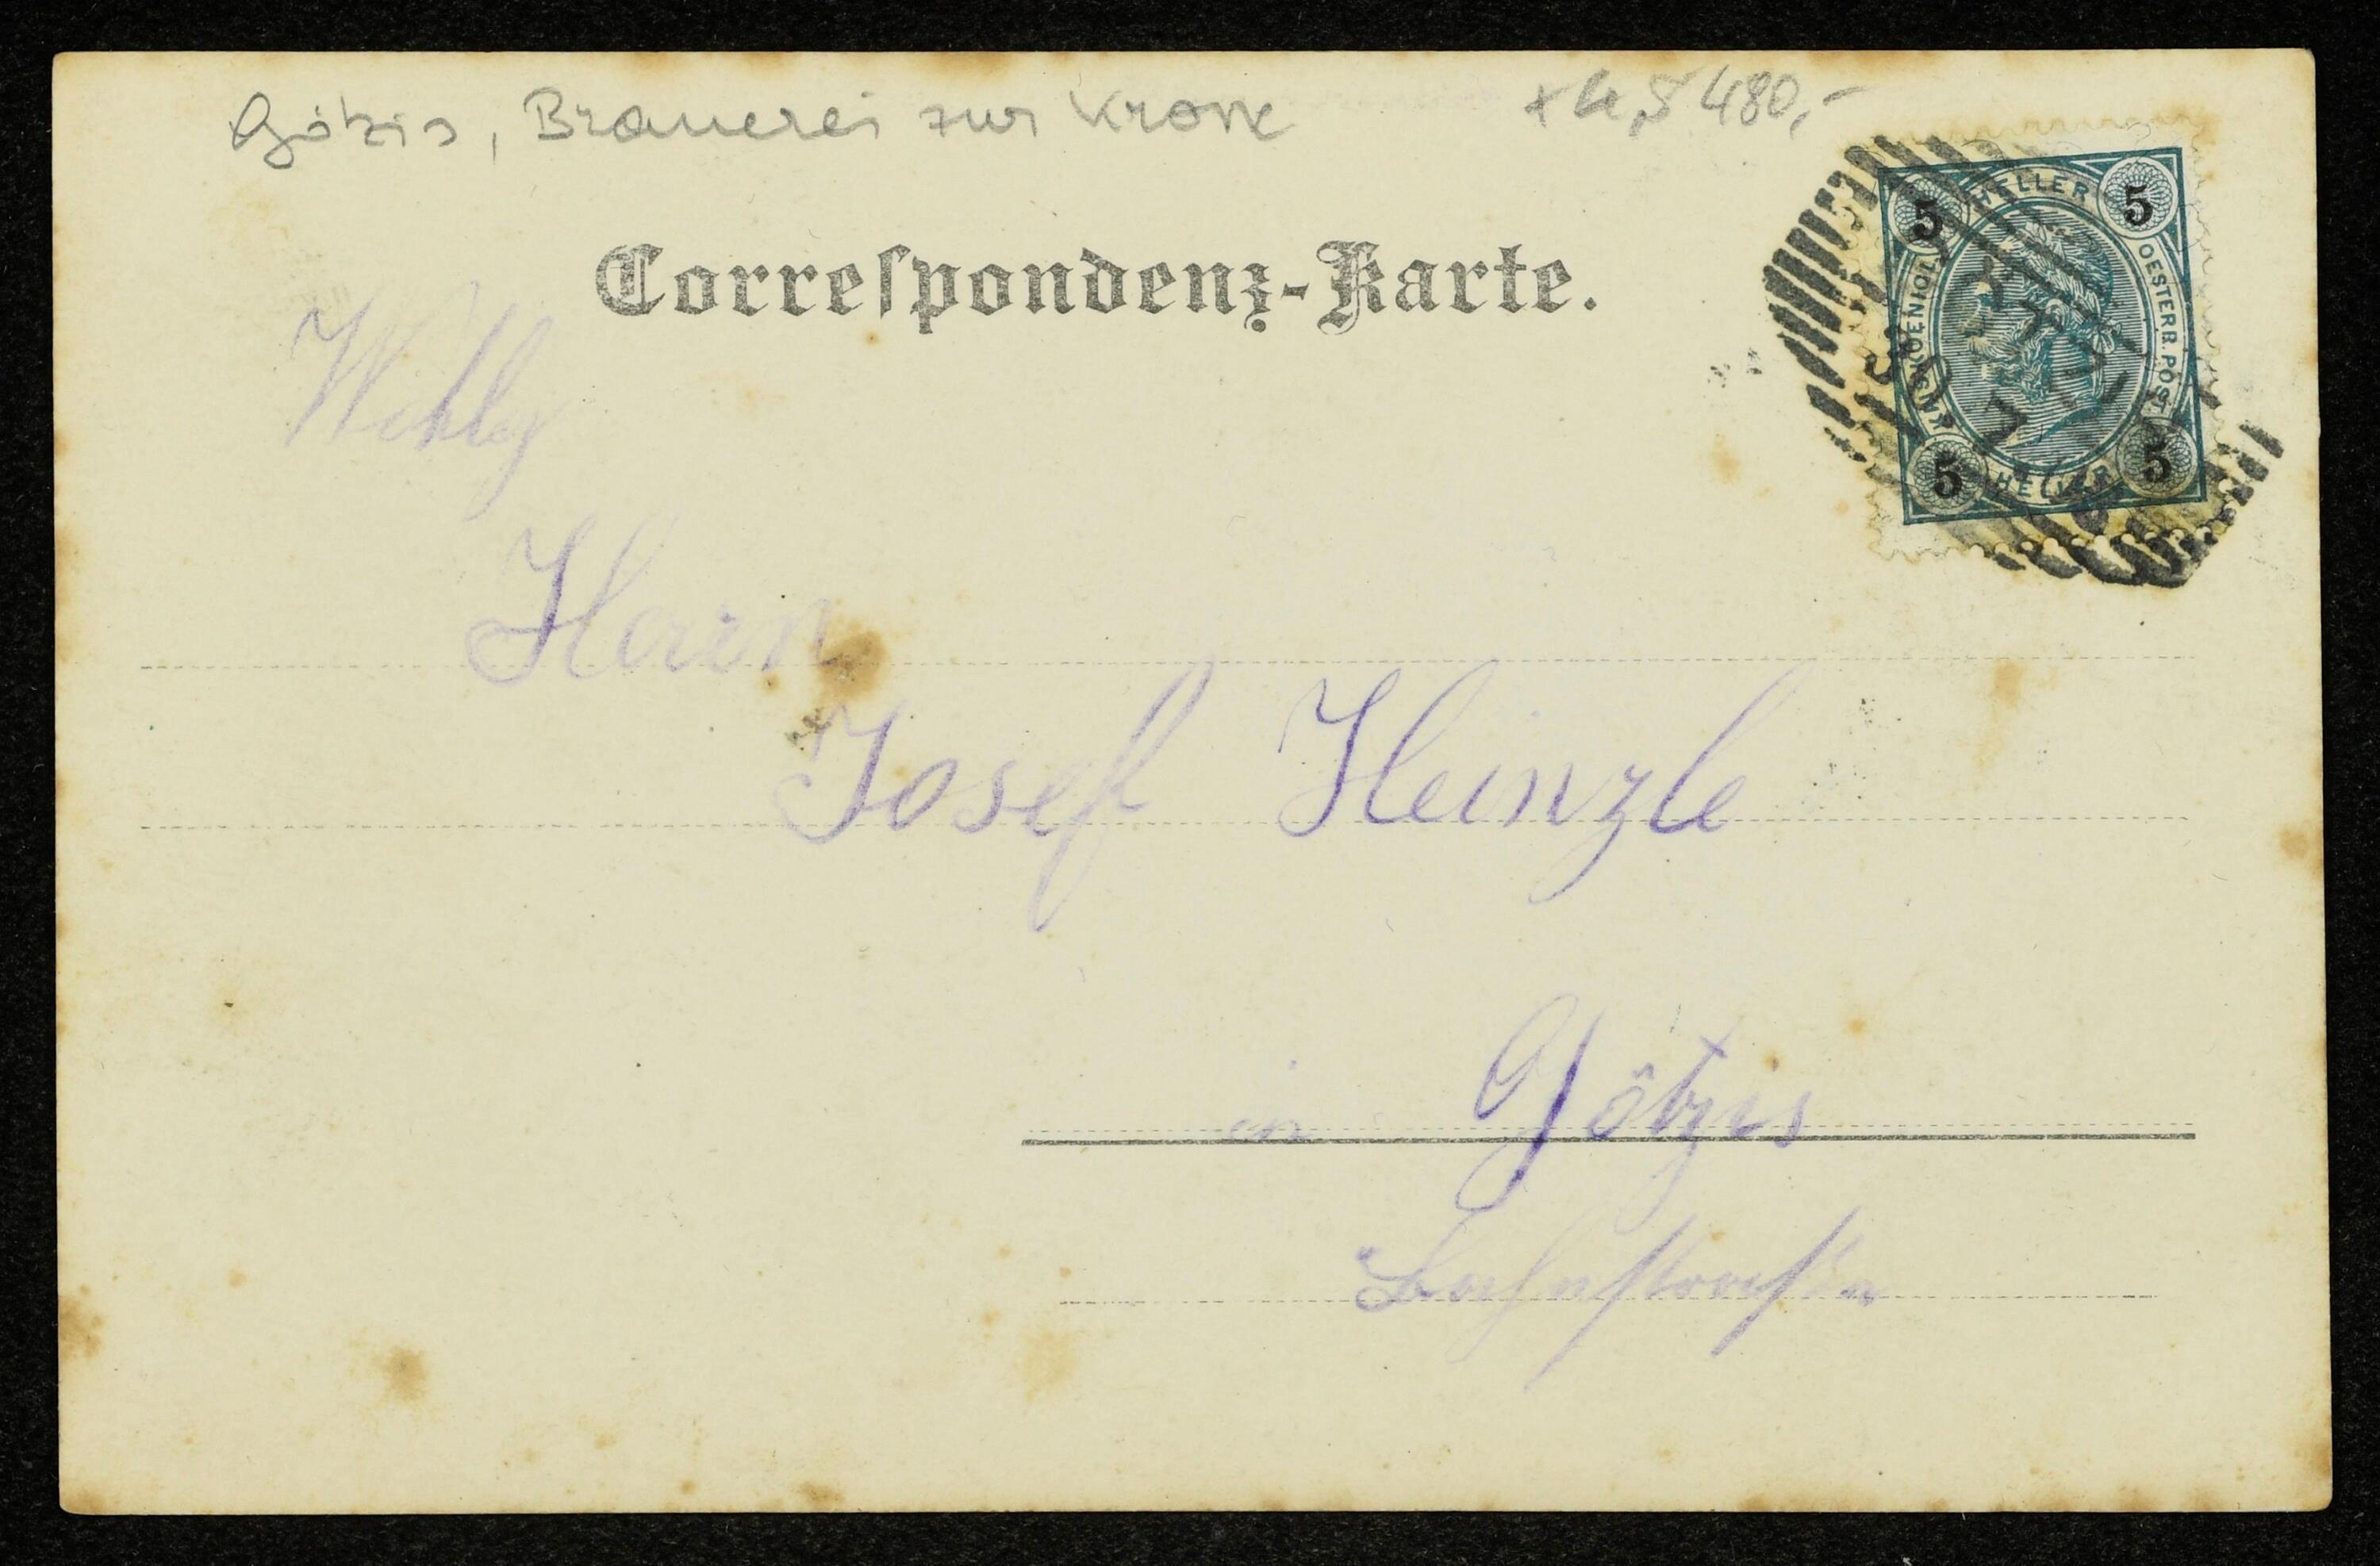 Götzis, Brauerei zur Krone
480,-
Correspondenz-Karte.
HELLER
5 5
KAIS. KOENIGL. OESTERR. POST.
5 5
HELLER
Wohlg
Herrn
Josef Heinzle
in Götzis
Bahnstraße